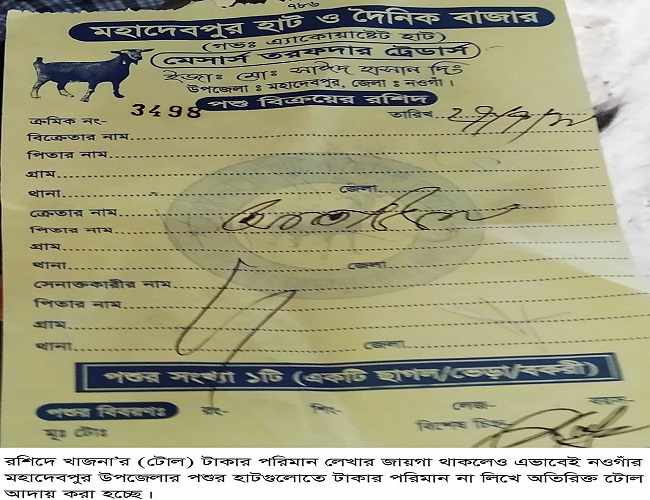 ৭৮৬
মহাদেবপুর হাট ও দৈনিক বাজার
(গভঃ এ্যাকোয়াষ্টেট হাট)
মেসার্স তরফদার ট্রেডার্স
ইজাঃ প্রোঃ সাঈদ হাসান দিং
উপজেলা : মহাদেবপুর, জেলা : নওগাঁ।
পশু বিক্রয়ের রশিদ
ক্রমিক নং- 3498 তারিখ
বিক্রেতার নাম
পিতার নাম
গ্রাম
থানা জেলা
ক্রেতার নাম
পিতার নাম
গ্রাম
থানা জেলা
সেনাক্তকারীর নাম
পিতার নাম
গ্রাম
থানা জেলা
পশুর সংখ্যা ১টি (একটি ছাগল/ভেড়া/বকরী)
পশুর বিবরণঃ রং- শিং- লেজ-
মূঃ টোঃ বিশেষ চিহ্ন
রশিদে খাজনা'র (টোল) টাকার পরিমান লেখার জায়গা থাকলেও এভাবেই নওগাঁর
মহাদেবপুর উপজেলার পশুর হাটগুলোতে টাকার পরিমান না লিখে অতিরিক্ত টোল
আদায় করা হচ্ছে।